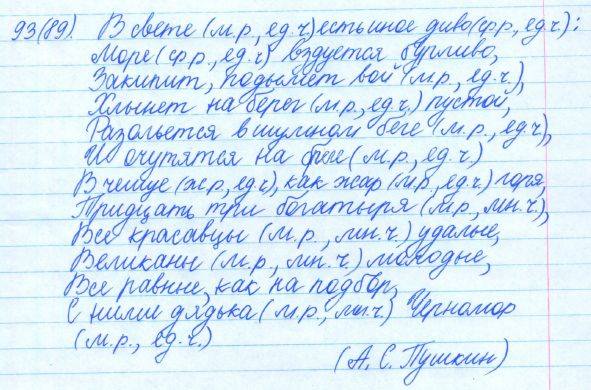 93(89). В свете (м.р., ед.ч) есть иное диво (ср.р., ед.ч.):
Море (ср.р., ед.ч) вздуется бурливо,
Закипит, подымет вой (м.р., ед.ч.),
Хлынет на берег (м.р., ед.ч.) пустой,
Разольется в шумном беге (м.р., ед.ч),
И очутятся на бреге (м.р., ед.ч.)
В чешуе (ж.р., ед.ч), как жар (м.р., ед.ч.) горя,
Тридцать три богатыря (м.р., мн.ч.),
Все красавцы (м.р., мн.ч.) удалые,
Великаны (м.р., мн.ч.) молодые,
Все равны, как на подбор,
С ними дядька (м.р., мн.ч.) Черномор
(м.р., ед.ч.)
(А. С. Пушкин)